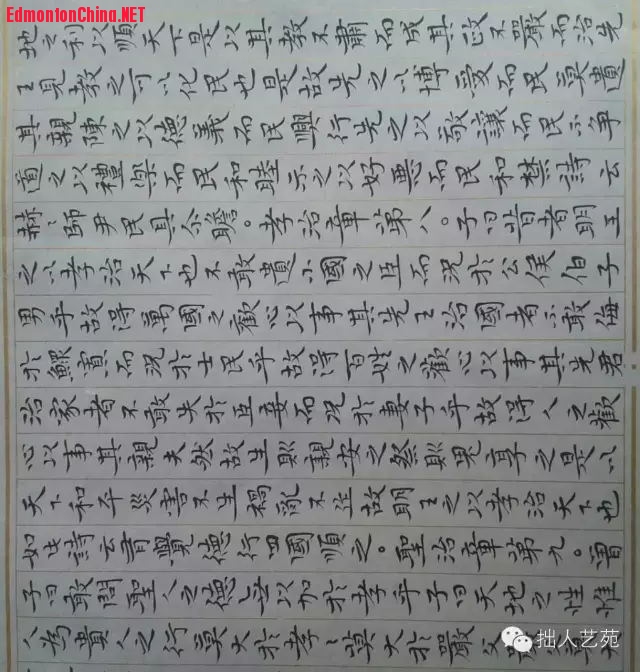 EdmontonChina.NET
地之利以順天下是以其教不肅而成其政不嚴而治先
王見教之可以化民也是故先之以博愛而民莫遺
其親陳之以德義而民興行先之以敬讓而民不爭
道之以禮樂而民和睦示之以好惡而民和禁詩云
赫〻師尹民具尒瞻。孝治章第八。子曰昔者明王
之以孝治天下也不敢遺小國之臣而況於公侯伯子
男乎故得萬國之歡心以事其先王治國者不敢侮
於鰥寡而況於士民乎故得百姓之歡心以事其先君
治家者不敢失於臣妾而況於妻子乎故得人之歡
心以事其親夫然故生則親安之祭則鬼享之是以
天下和平災害不生禍亂不作故明王之以孝治天下也
如此詩云有覺德行四國順之。聖治章第九。曾
子曰敢問聖人之德無以加於孝乎子曰天地之性惟
人為貴人之行莫大於孝〻莫大於嚴父
拙人艺苑